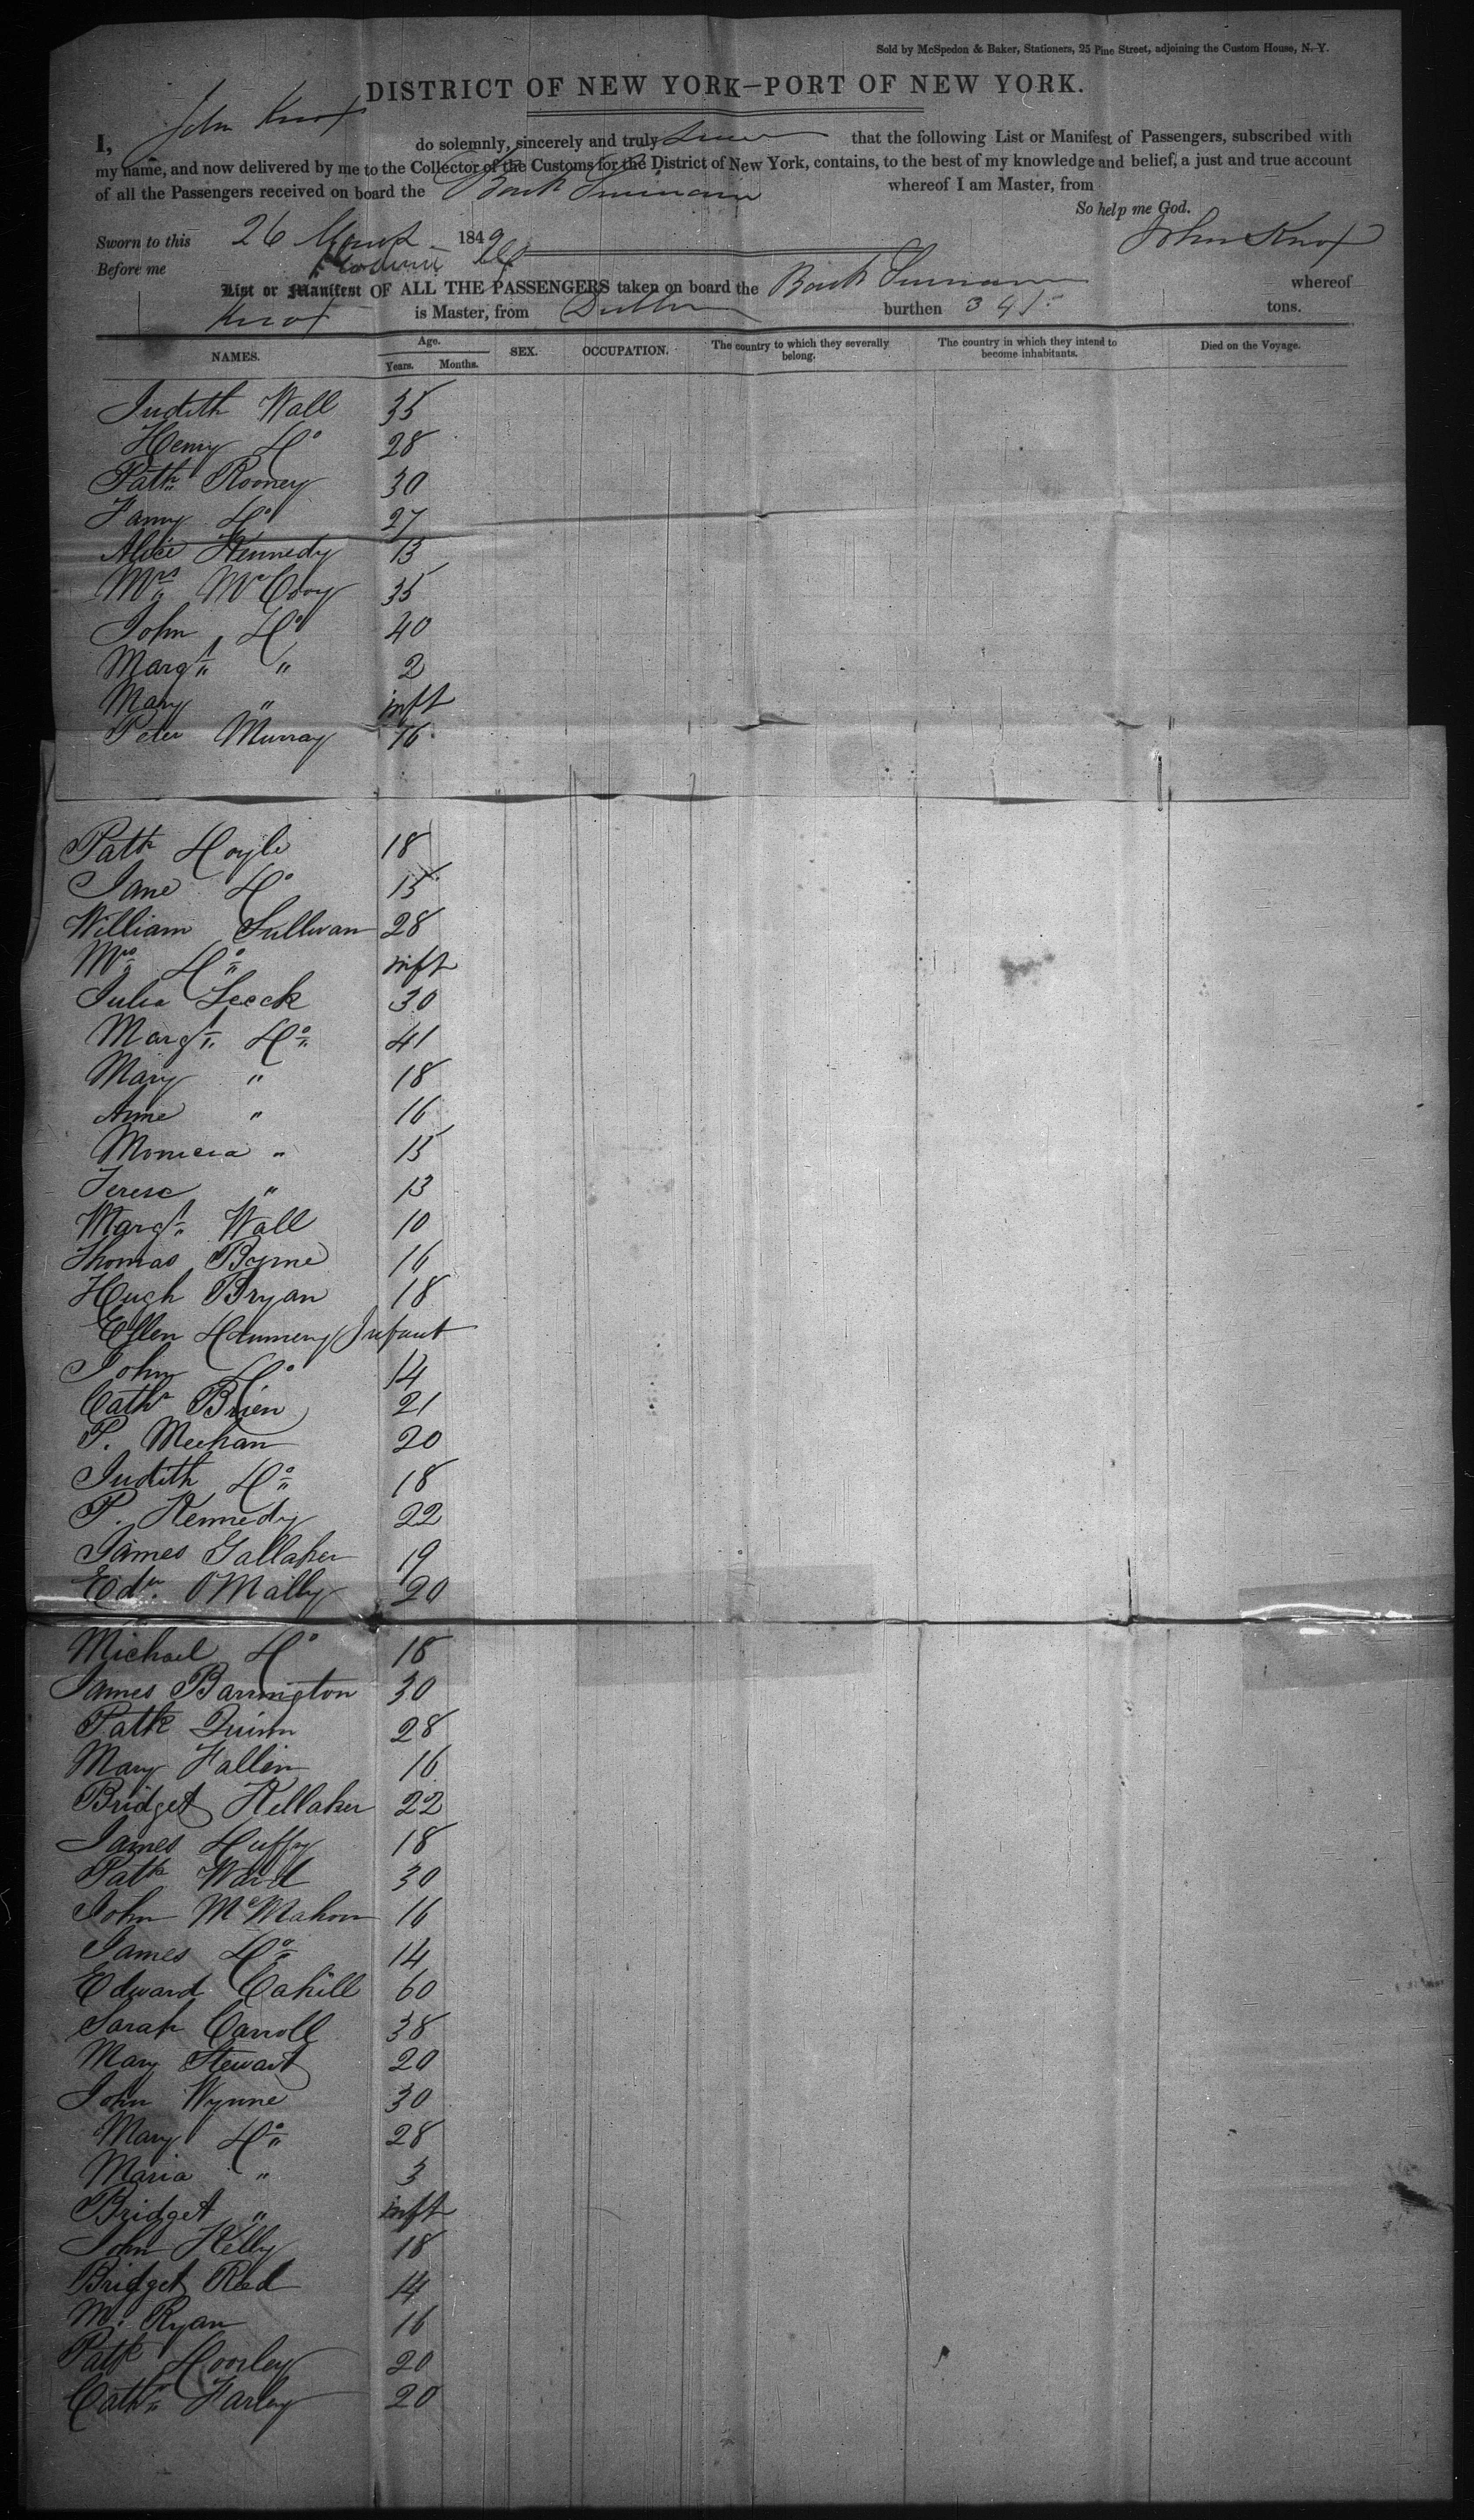 Sold by McSpedon & Baker, Stationers, 25 Pine Street, adjoining the Custom House, N.-Y.
DISTRICT OF NEW YORK—PORT OF NEW YORK.
I, John Knox do solemnly, sincerely and truly swear that the following List or Manifest of Passengers, subscribed with
my name, and now delivered by me to the Collector of the Customs for the District of New York, contains, to the best of my knowledge and belief, a just and true account
of all the Passengers received on board the Bark whereof I am Master, from
So help me God.
Sworn to this 26 March 1849 John Knox
Before me
List or Manifest OF ALL THE PASSENGERS taken on board the Bark whereof
Knox is Master, from Dublin burthen tons.
NAMES. Age. Years. Months. SEX. OCCUPATION. The country to which they severally belong. The country in which they intend to become inhabitants. Died on the Voyage.
Judith Wall 35
Henry Do 28
Patk Rooney 30
Fanny Do 27
Alice Kennedy 13
Mrs McCovy 35
John Do 40
Margt " 2
Mary " inft
Peter Murray 16
Patk Doyle 18
Jane Do 15
William Sullivan 28
Mrs Do inft
Julia Leeck 30
Margt Do 41
Mary " 18
Anne " 16
Monicia " 15
Terese " 13
Margt Wall 10
Thomas Byrne 16
Hugh Bryan 18
Ellen Infant
John Do 14
Cathn Brien 21
P. Meehan 20
Judith Do 18
P. Kennedy 22
James Gallaher 19
Edn. O'Mally 20
Michael Do 18
James Barrington 30
Patk Quinn 28
Mary Fallin 16
Bridget Kellaher 22
James Duffy 18
Patk Ward 30
John McMahon 16
James Do 14
Edward Cahill 60
Sarah Carroll 38
Mary Stewart 20
John Wynne 30
Mary Do 28
Maria " 3
Bridget " inft
John Kelly 18
Bridget Red 14
M. Ryan 16
Patk Doorley 20
Cathn Farley 20